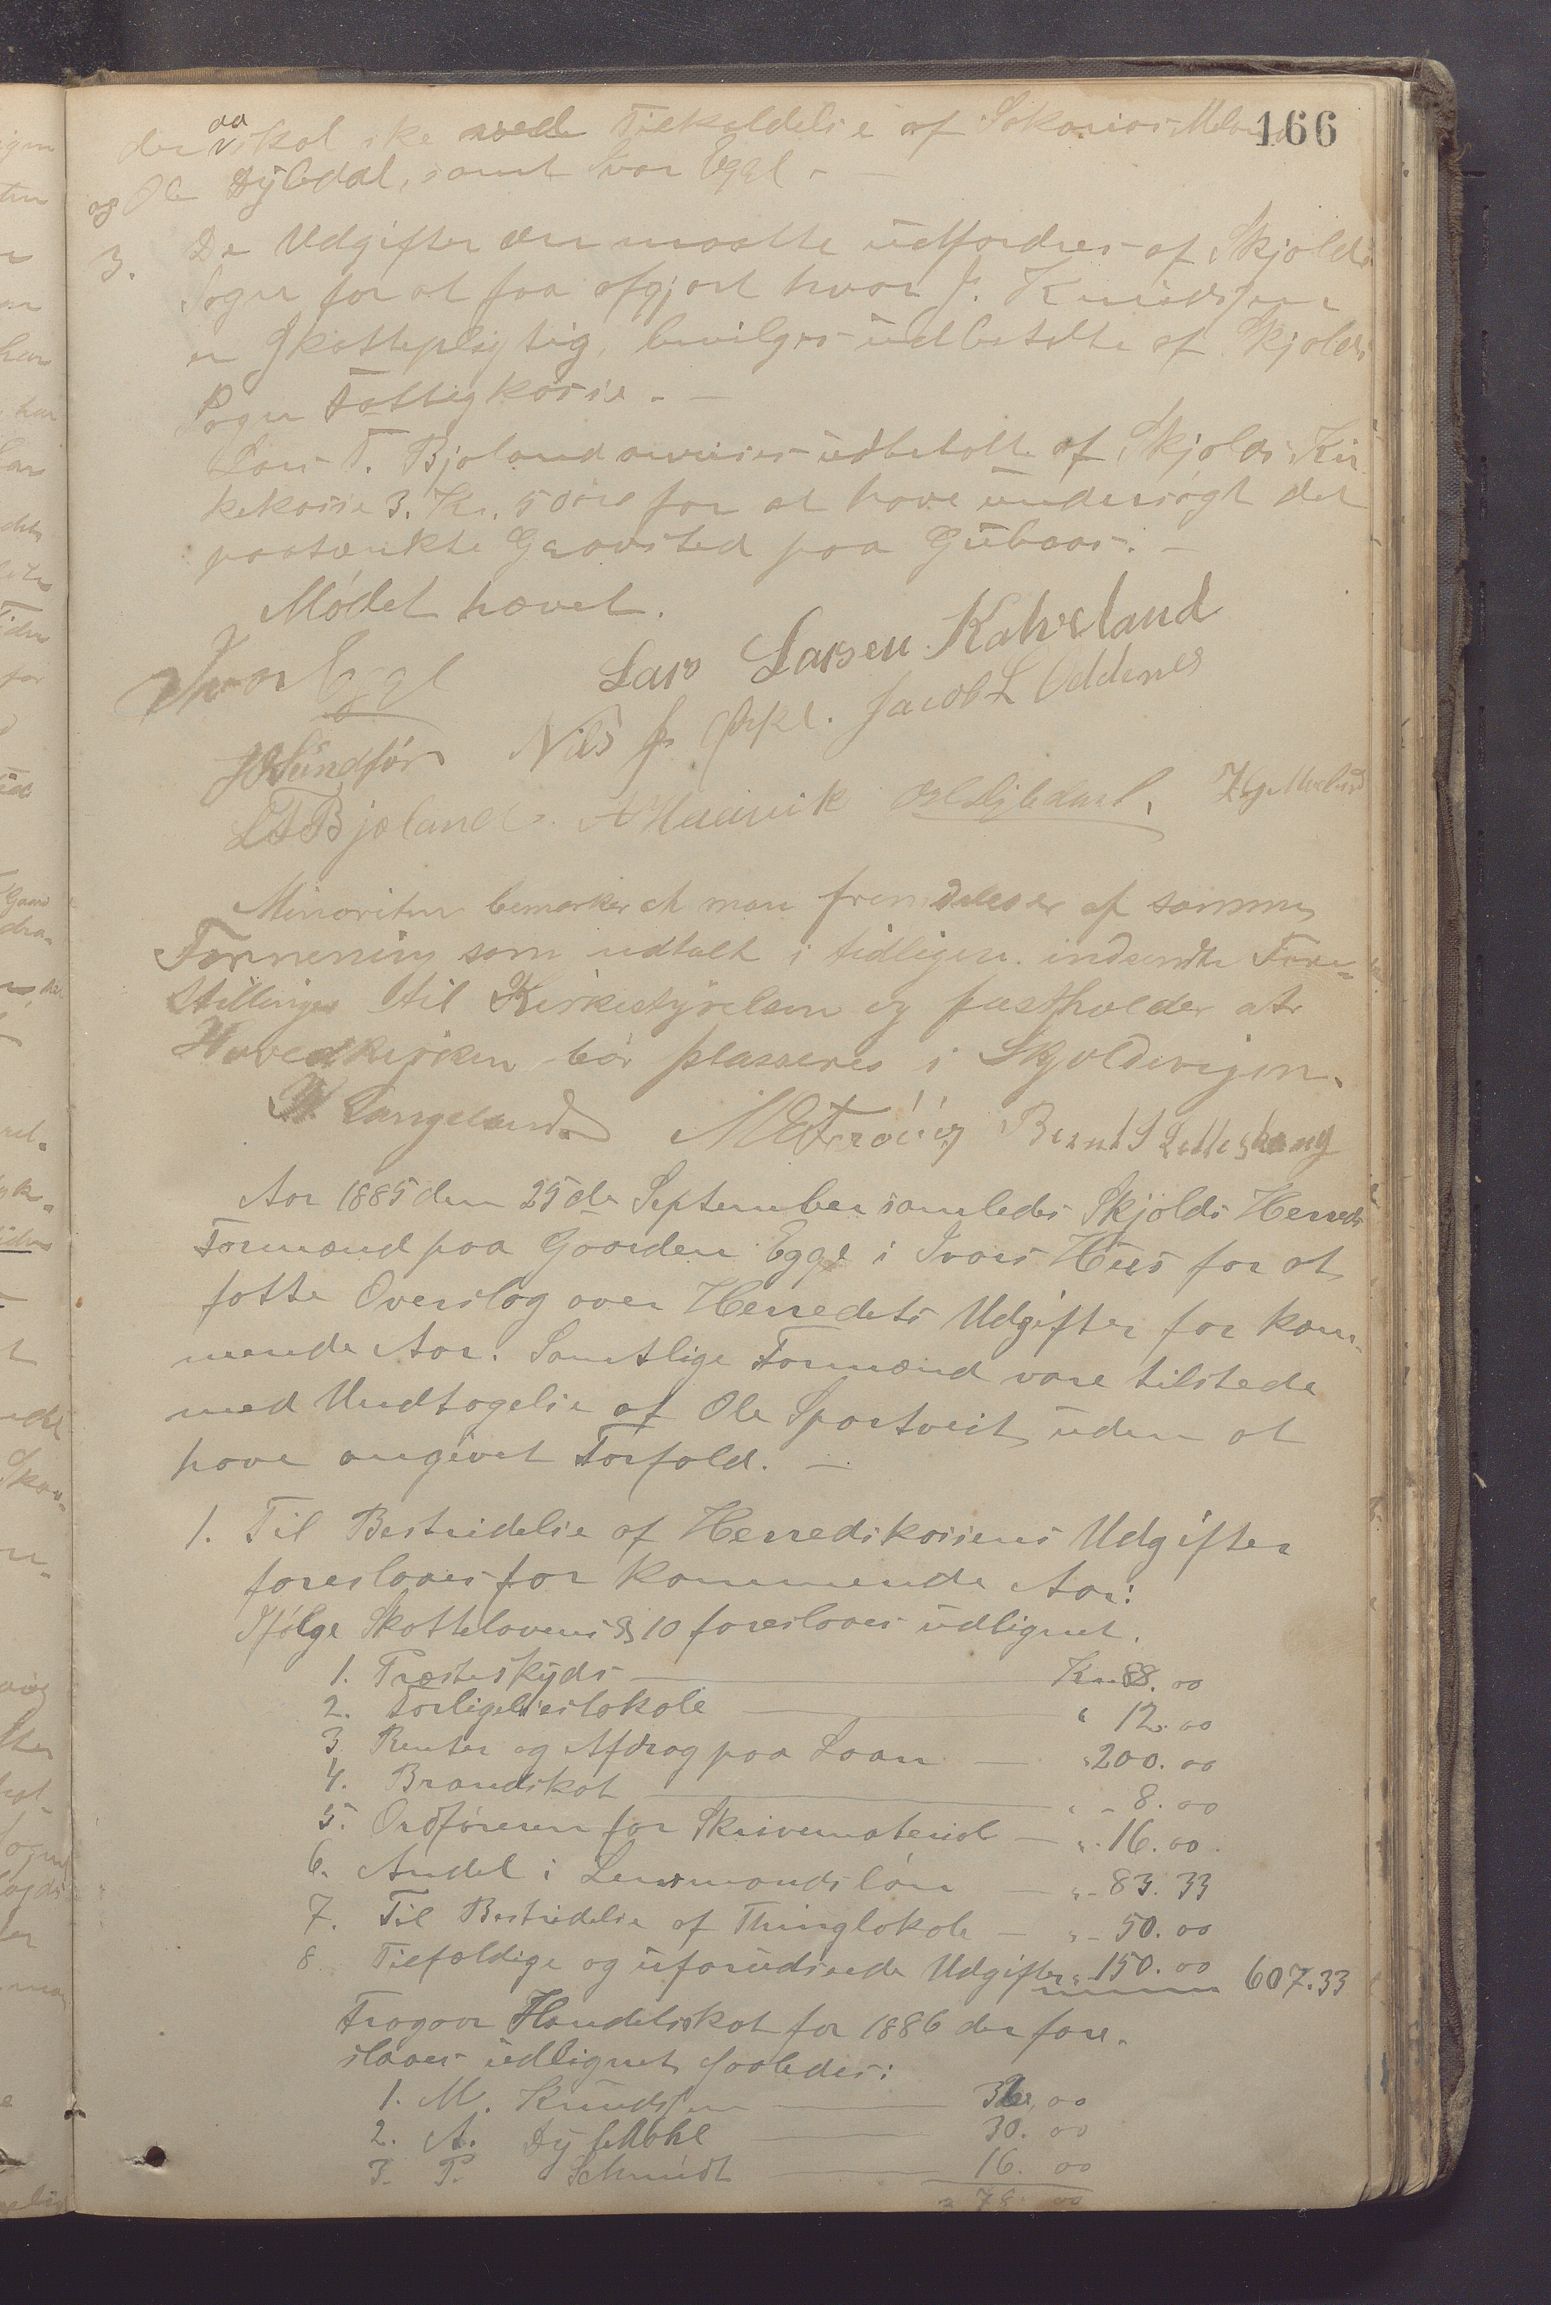 166
der aa skal ske ved Tilkaldelse af Sakarias Meland
og Ole Dybdal, samt Ivar Egge. -
3. De Udgifter der maatte udfordres af Skjolds
Sogn for at faa afgjort hvor J. Knudssen
er Skattepligtig, bevilges udbetalte af Skjolds
Sogns Fattigkasse. -
Lars T. Bjoland anvises udbetalt af Skjolds Kir
kekasse 3. Kr. 5 Øre for at have undersøgt det
paatænkte Gravsted paa Gubaas. -
Mødet hævet.
Ivar Egge Lars Larsen Kahrland
Sundfør Nils J. Jacob L Oddenes
L T Bjoland. A Haavik Ole Dybdal. Meland
Minoriten bemærker at man fremdeles er af samme
Formening som udtalt i tidligere indsendte Fore-
stillinger til Kirkestyrelsen og fastholder at
Hovedkirken bør plasseres i Skjoldevigen.
Langeland Bernt S Lelleskaug
Aar 1885 den 25de September samledes Skjolds Herreds
Formænd paa Gaarden Egge i Ivars Hus for at
fatte Overslag over Herredets Udgifter for kom-
mende Aar. Samtlige Formænd vare tilstede
med Undtagelse af Ole Sportveit uden at
have angivet Forfald. -
1. Til Bestridelse af Herredskassens Udgifter
foreslaaes for kommende Aar:
Ifølge Skattelovens § 10 foreslaaes udlignet.
1. Præsteskyds Kr. 88.00
2. Forligelseslokale " 12.00
3 Renter og Afdrag paa Laan - " 200.00
4. Brandskat " - 8.00
5. Ordføreren for Skrivematerial - " - 16.00
6. Andel i Lensmandsløn - " - 83.33
7. Til Bestridelse af Thinglokale - " - 50.00
8 Tilfældige og uforudseede Udgifter " 150.00 607.33
Fragaar Handelsskat for 1886 der fore-
slaaes udlignet saaledes:
1. M. Knudssen 32,00
2. A. Dybdahl 30.00
3. P. Schmidt 16.00
" 78.00